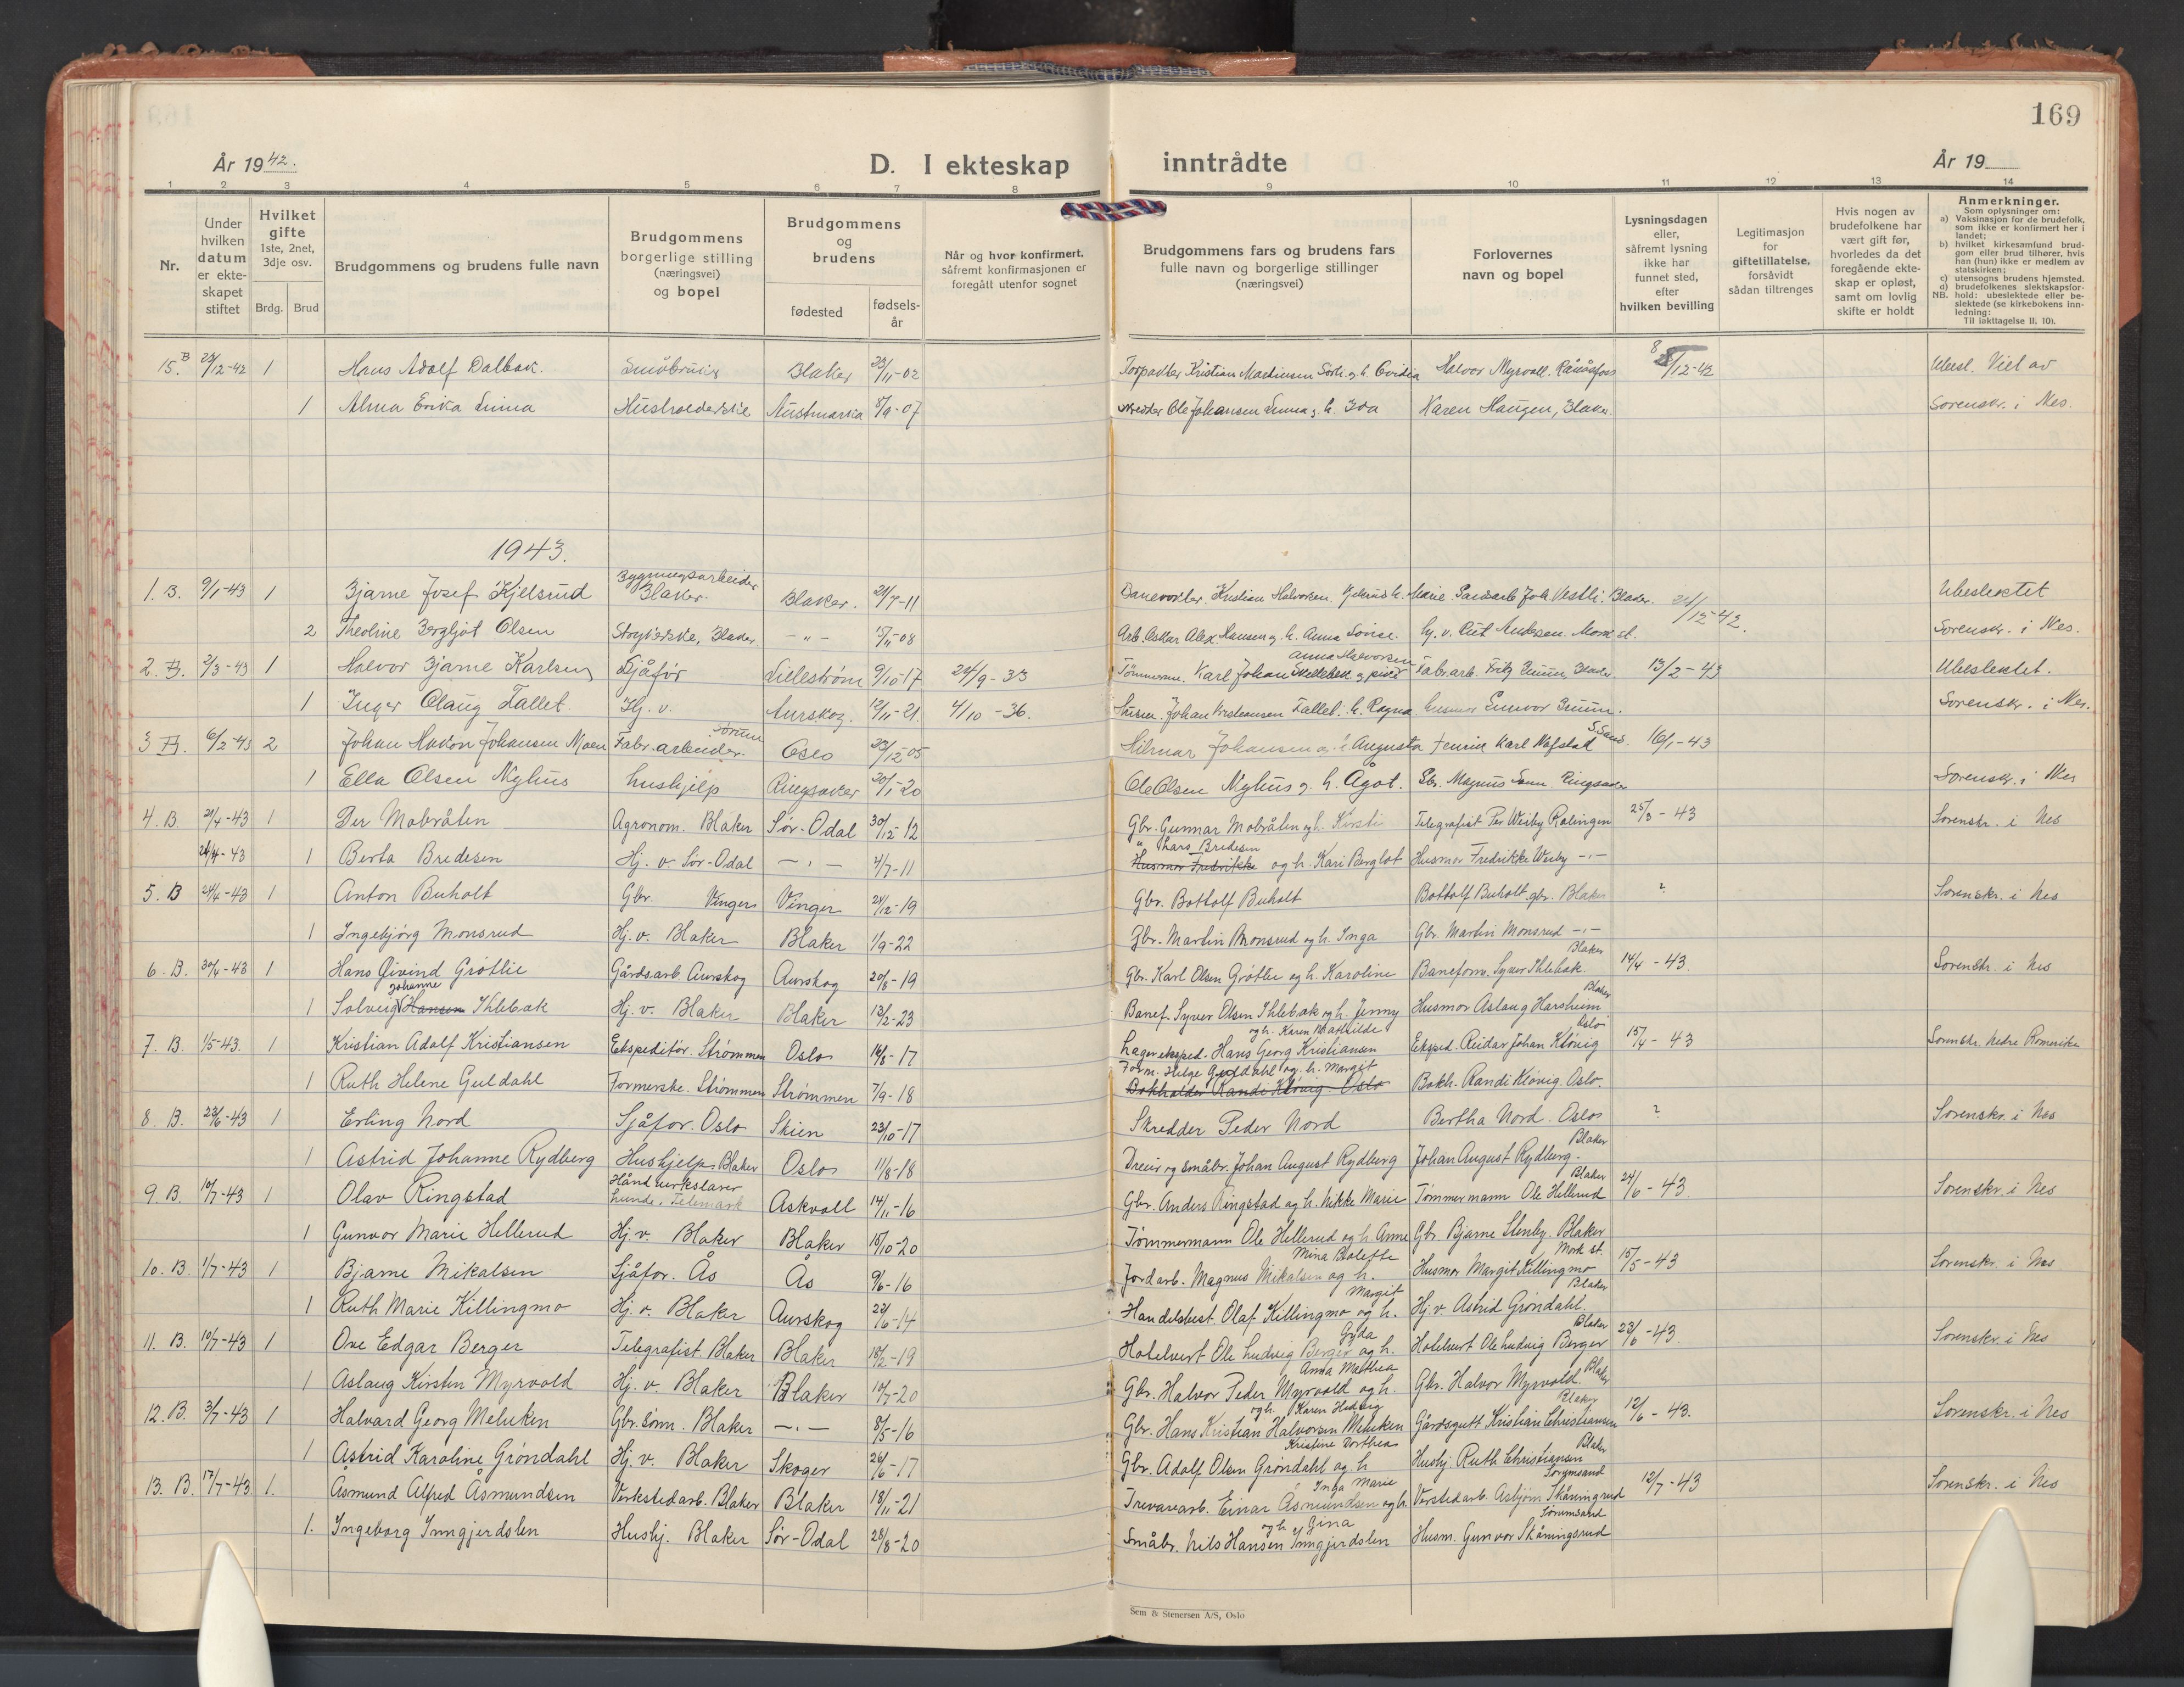 169
År 1942.
D. I ekteskap inntrådte
År 19
1 2 3 4 5 6 7 8 9 10 11 12 13 14
Nr.
Under hvilken datum er ekteskapet stiftet
Hvilket gifte 1ste, 2net, 3dje osv.
Brdg. Brud
Brudgommens og brudens fulle navn
Brudgommens borgerlige stilling (næringsvei) og bopel
Brudgommens og brudens
fødested
fødselsår
Når og hvor konfirmert, såfremt konfirmasjonen er foregått utenfor sognet
Brudgommens fars og brudens fars fulle navn og borgerlige stillinger (næringsvei)
Forlovernes navn og bopel
Lysningsdagen eller, såfremt lysning ikke har funnet sted, efter hvilken bevilling
Legitimasjon for giftetillatelse, forsåvidt sådan tiltrenges
Hvis nogen av brudefolkene har vært gift før, hvorledes da det foregående ekteskap er opløst, samt om lovlig skifte er holdt
Anmerkninger.
Som oplysninger om:
a) Vaksinasjon for de brudefolk, som ikke er konfirmert her i landet;
b) hvilket kirkesamfund brudgom eller brud tilhører, hvis han (hun) ikke er medlem av statskirken;
c) utensogns brudens hjemsted.
d) brudefolkenes slektskapsforhold: ubeslektede eller beslektede (se kirkebokens innledning:
NB.
Til iakttagelse II, 10).
15. B 1 Hans Adolf Dalbak. Småbruker Blaker 23/11-02 Kristian Martinsen Halvor Myrvoll. Rånåsfoss 12-42 Ubesl. Viet av
1 Alma Erika Linna Husholderske Austmarka 8/9-07 Ole Johansen Linna g. h. Ida Karen Haugen, Blaker. Sorenskr. i Nes.
1943.
1. B. 9/1-43 1 Bjarne Josef Kjelsrud Bygningsarbeider Blaker. Blaker. 21/7-11 Kristian Halvorsen Marie. Joh. Vestli. Blaker. 12-42. Ubeslektet
2 Theoline Bergljot Olsen Strykerske, Blaker - " - 15/11-08 Arb. Oskar Alex Hansen g. h. Anna Lovise. Hj. v. Rut Andersen. Mork st. Sorenskr. i Nes.
2. B. 2/3-43 1 Halvor Bjarne Karlsen Sjåfør Lillestrøm 9/10-17 24/9-33 Tømmerm. Karl Johan Anna Halvorsen Fabr.arb. Fritz Blaker. 13/2-43 Ubeslektet.
1 Inger Olaug Fallet Hj. v. Aurskog. 12/11-21. 4/10-36. Johan Kristiansen Fallet. h. Ragna Husmor Gunvor Sorenskr. i Nes.
3 B. 6/2-43 2 Johan Håkon Johansen Moen Fabr. arbeider. Sørum Oslo 23/12-05 Hilmar Johansen g. h. Augusta Karl Nafstad S.Sand. 16/1-43
1 Ella Olsen Nyhus Hushjelp Ringsaker 20/1-20 Ole Olsen Nyhus g. h. Agot. Gbr. Magnus Ringsaker Sorenskr. i Nes
4. B. 21/4-43 1 Per Mobråten Agronom. Blaker Sør-Odal 30/12-12 Gbr. Gunnar Mobråten og h. Kirsti Telegrafist Per Weiby Rælingen 25/3-43 Sorenskr. i Nes
1 Berta Bredesen Hj. v. Sør-Odal - " - 4/7-11 " Lars Bredesen Husmor Fredrikke og h. Kari Berglot Husmor Fredrikke Weiby - " -
5. B 24/4-43 1 Anton Buholt Gbr. Vinger Vinger 28/12-19 Gbr. Bottolf Buholt Bottolf Buholt gbr. Blaker ? Sorenskr. i Nes
1 Ingebjørg Monsrud Hj. v. Blaker Blaker 1/9-22 Gbr. Martin Monsrud og h. Inga Gbr. Martin Monsrud - " -
6. B. 30/4-43 1 Hans Øivind Grøtlie Gårdsarb. Aurskog Aurskog 20/8-19 Gbr. Karl Olsen Grøtlie og h. Karoline Baneform. Syver Ihlebæk. Blaker 14/4-43. Sorenskr. i Nes
1 Solveig Johanne Hansen Ihlebæk Hj. v. Blaker Blaker 13/2-23 Banef. Syver Olsen Ihlebæk og h. Jenny Husmor Aslaug Harsheim Blaker
7. B. 1/5-43. 1 Kristian Adolf Kristiansen Ekspeditør. Strømmen Oslo 14/8-17 Lagereksped. Hans Georg Kristiansen og h. Karen Mathilde Eksped. Reidar Johan Kløvig Oslo 15/4-43 Sorenskr. Nedre Romerike
1 Ruth Helene Guldahl Formerske. Strømmen Strømmen 7/9-18 Form. Helge Guldahl og h. Margit Bokholder Randi Kløvig Oslo Bokh. Randi Kløvig. Oslo.
8. B. 23/6-43 1 Erling Nord Sjåfør. Oslo Skien 23/10-17 Skredder Peder Nord Bertha Nord. Oslo ? Sorenskr. i Nes
1 Astrid Johanne Rydberg Hushjelp Blaker Oslo 11/8-18 Dreier og småbr. Johan August Rydberg Johan August Rydberg. Blaker
9. B. 10/7-43 1 Olav Ringstad Håndverkslærer Lunde, Telemark Askvoll 14/11-16 Gbr. Anders Ringstad og h. Nikke Marie Tømmermann Ole Hellerud Blaker 24/6-43 Sorenskr. i Nes
1 Gunvor Marie Hellerud Hj. v. Blaker Blaker 15/10-20 Tømmermann Ole Hellerud og h. Anne Gbr. Bjarne Stenby. Blaker
10. B. 1/7-43 1 Bjarne Mikalsen Sjåfør. Ås Ås 9/6-16 Jordarb. Magnus Mikalsen og h. Mina Husmor Margit Killingmo Mork st. 15/5-43 Sorenskr. i Nes
1 Ruth Marie Killingmo Hj. v. Blaker Aurskog 22/6-14 Handelsbest. Olaf Killingmo og h. Margit Hj. v. Astrid Grøndahl. Blaker
11. B. 10/7-43 1 Ove Edgar Berger Telegrafist. Blaker Blaker 18/2-19 Hotelvert Ole Ludvig Berger og h. Gyda Hotelvert Ole Ludvig Berger Blaker 23/6-43. Sorenskr. i Nes
1 Aslaug Kirsten Myrvold Hj. v. Blaker Blaker 10/7-20 Gbr. Halvor Peder Myrvold og h. Anna Mathea Gbr. Halvor Myrvold Blaker
12. B. 3/7-43 1 Halvard Georg Meluken Gbr.sønn. Blaker - " - 8/5-16 Gbr. Hans Kristian Halvorsen Meluken og h. Karen Hedvig Gårdsgutt Kristian Christiansen Blaker 12/6-43. Sorenskr. i Nes
1 Astrid Karoline Grøndahl Hj. v. Blaker Skoger 26/6-17 Gbr. Adolf Olsen Grøndahl og h. Kristine Dorthea Hushj. Ruth Christiansen Blaker
13. B. 17/7-43 1. Åsmund Alfred Åsmundsen Verkstedarb. Blaker Blaker 18/11-21 Trevarearb. Einar Åsmundsen og h. Inga Marie Verstedarb. Asbjørn Skåningrud Sørumsand 12/7-43 Sorenskr. i Nes
1. Ingeborg Inngjerdslen Hushj. Blaker Sør-Odal 28/8-20 Småbr. Nils Hansen Inngjerdslen og h. Gina Husm. Gunvor Skåningsrud Sørumsand
Sem & Stenersen A/S, Oslo